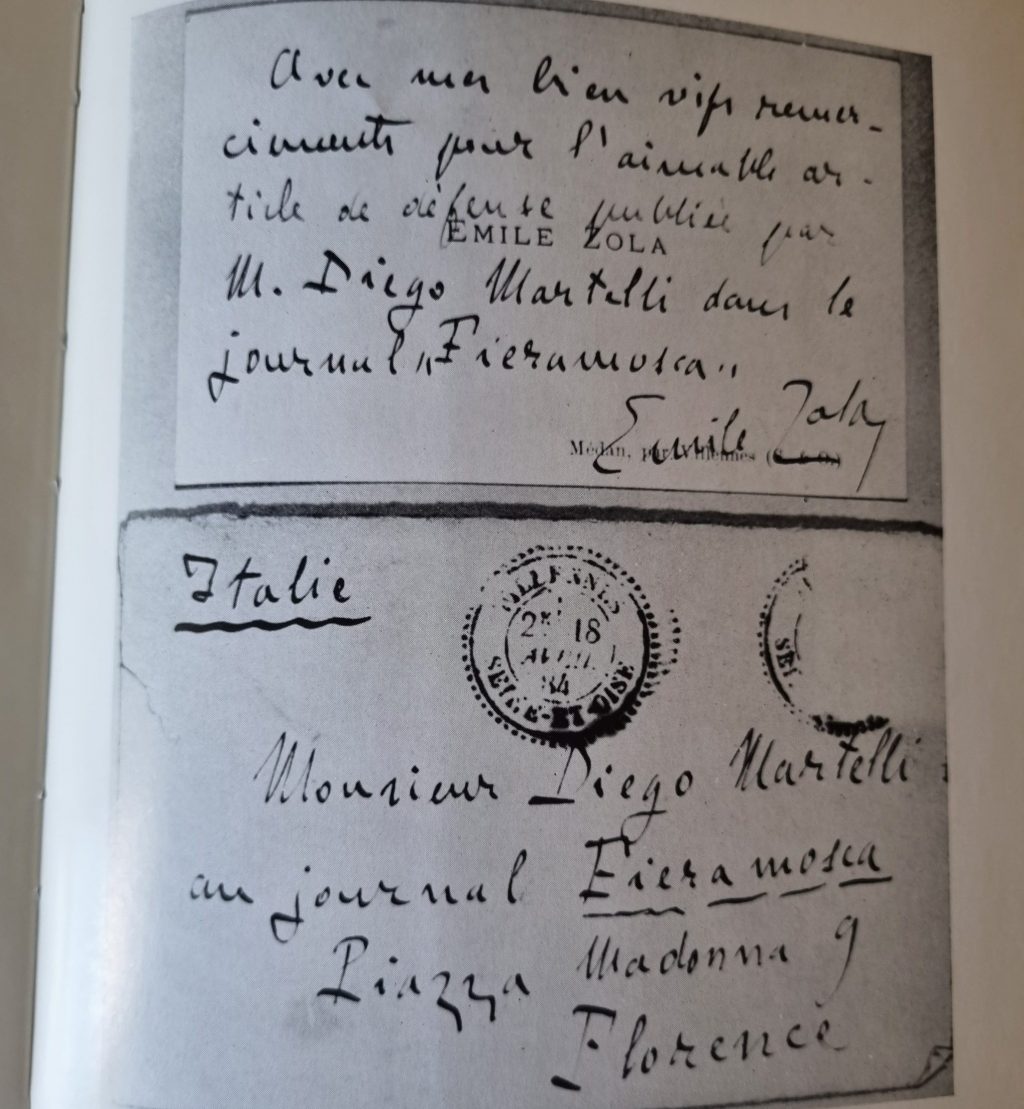 Avec mes bien vifs remer-
ciments pour l'aimable ar-
ticle de défense publiée par
EMILE ZOLA
M. Diego Martelli dans le
journal „Fieramosca"
Emile Zola
Médan, par Villennes
Italie
VILLENNES
2E 18
AVRIL
84
SEINE-ET-OISE
SEI
Monsieur Diego Martelli
au journal Fieramosca
Piazza Madonna 9
Florence